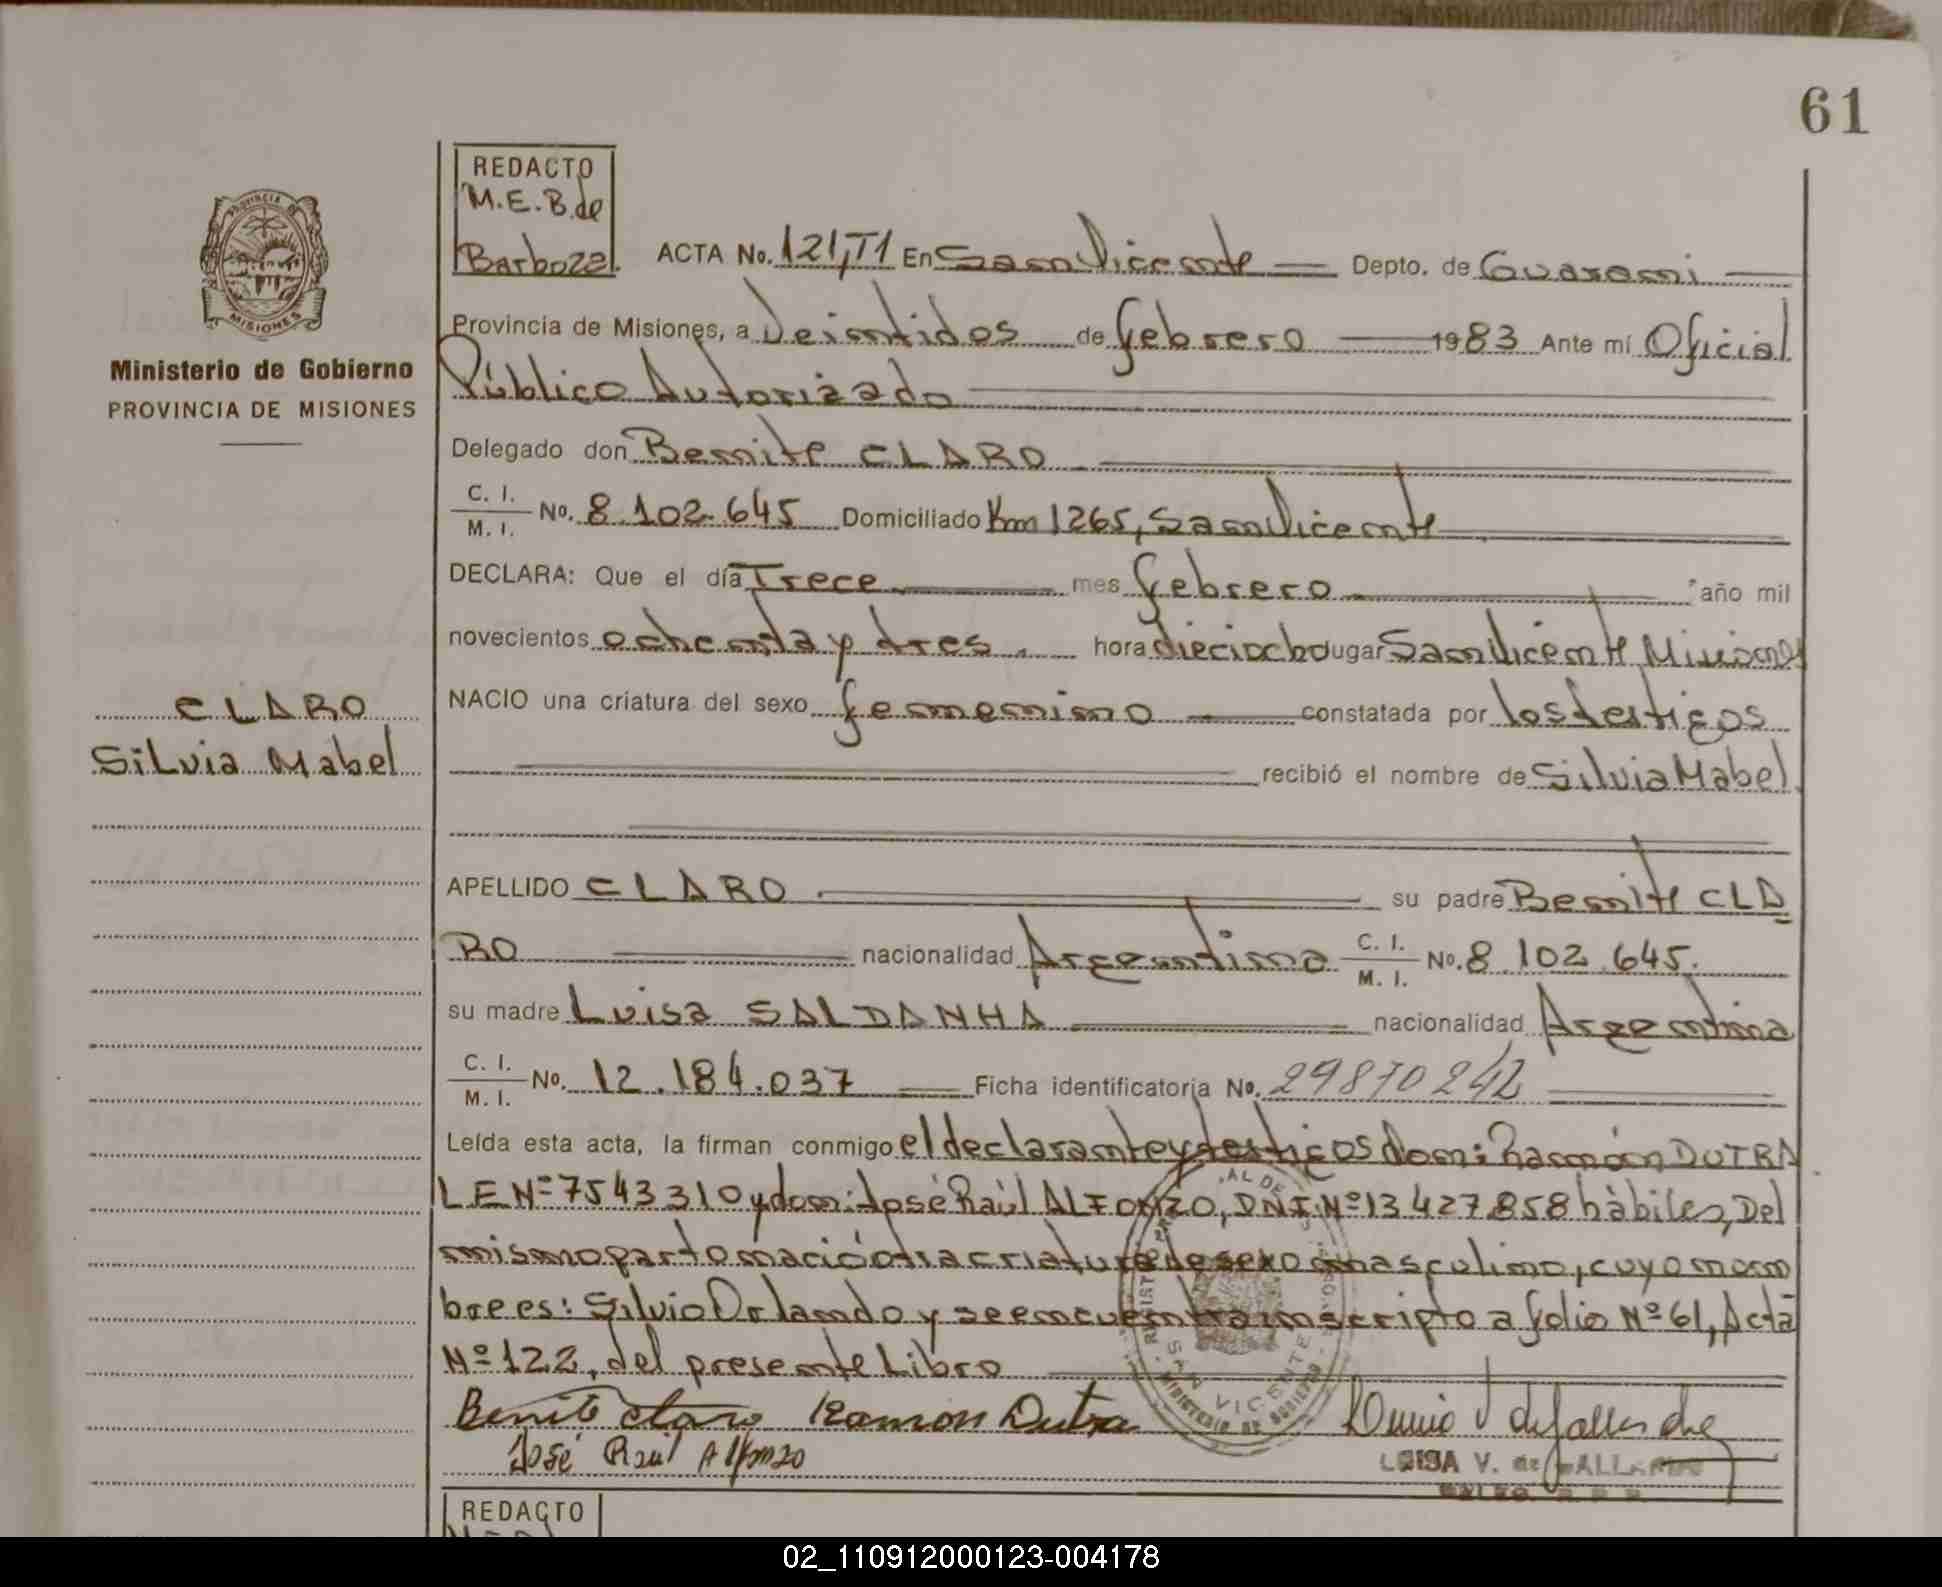 61
REDACTO
M.E.B. de
Barboza
ACTA No. 121,T1 En San Vicente Depto. de Guarani
Provincia de Misiones, a Veintidos de febrero 1983 Ante mí Oficial
Público Autorizado
PROVINCIA DE
MISIONES
Ministerio de Gobierno
PROVINCIA DE MISIONES
Delegado don Benite CLARO
C. I.
M. I.
No. 8.102.645 Domiciliado Km 1265, San Vicente
DECLARA: Que el día Trece mes febrero año mil
novecientos ochenta y tres. hora dieciocho lugar San Vicente Misiones
CLARO
Silvia Mabel
NACIO una criatura del sexo femenino constatada por los testigos
recibió el nombre de Silvia Mabel
APELLIDO CLARO su padre Benite CLA
RO nacionalidad Argentino C. I. M. I. No. 8.102.645.
su madre Luisa SALDANHA nacionalidad Argentina
C. I.
M. I.
No. 12.184.037 Ficha identificatoria No. 29870242
Leída esta acta, la firman conmigo el declarante y testigos don: Ramón DUTRA
L.E Nº 7543310 y don: José Raúl ALFONZO, DNI. Nº 13427858 hàbiles, Del
mismo parto nació otra criatura de sexo masculino, cuyo nom
bre es: Silvio Orlando y se encuentra inscripto a folio Nº 61, Acta
Nº 122, del presente Libro
SAN VICENTE
MINISTERIO DE GOBIERNO
Benite Claro Ramon Dutra
José Raúl Alfonzo
LUISA V. de
REDACTO
02_110912000123-004178